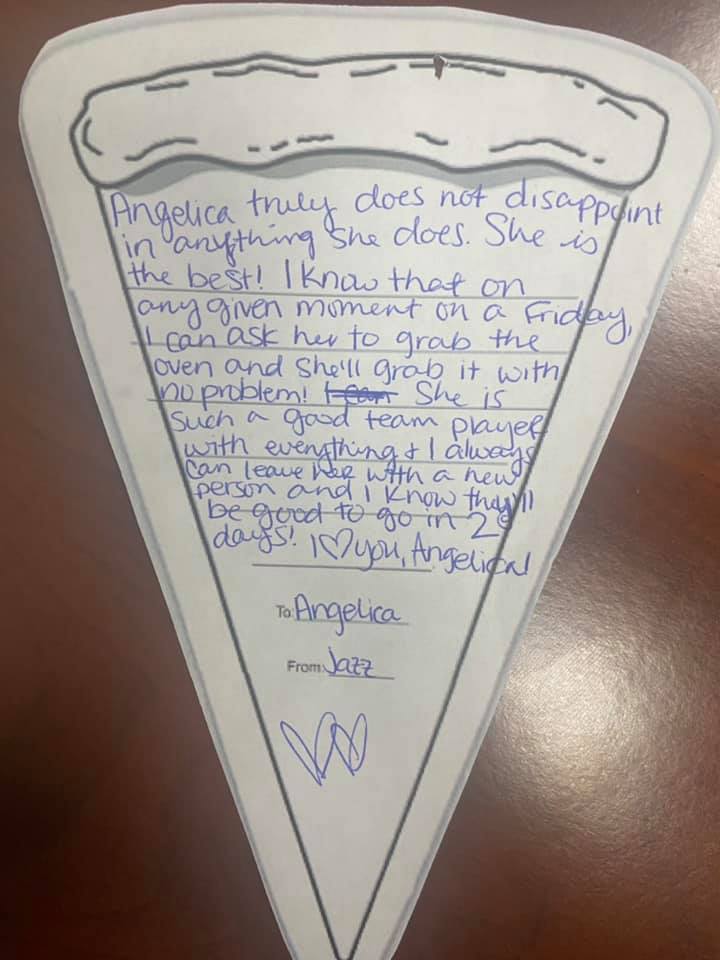 Angelica truly does not disappoint
in anything she does. She is
the best! I know that on
any given moment on a Friday,
I can ask her to grab the
oven and she'll grab it with
no problem! I can She is
such a good team player
with everything & I always
can leave her with a new
person and I know they'll
be good to go in 2
days! I ♡ you, Angelica!
To: Angelica
From: Jazz